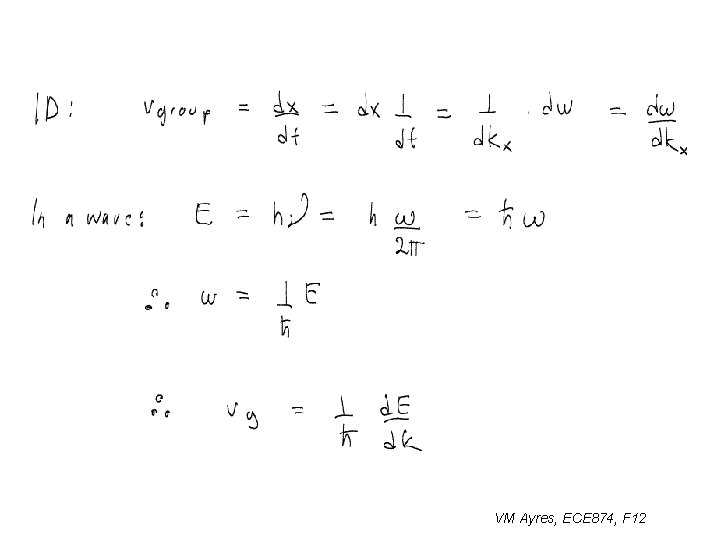 1D: vgroup = dx/dt = dx 1/dt = 1/dkx · dω = dω/dkx
In a wave: E = hν = h ω/2π = ħω
∴ ω = 1/ħ E
∴ vg = 1/ħ dE/dk
VM Ayres, ECE874, F12